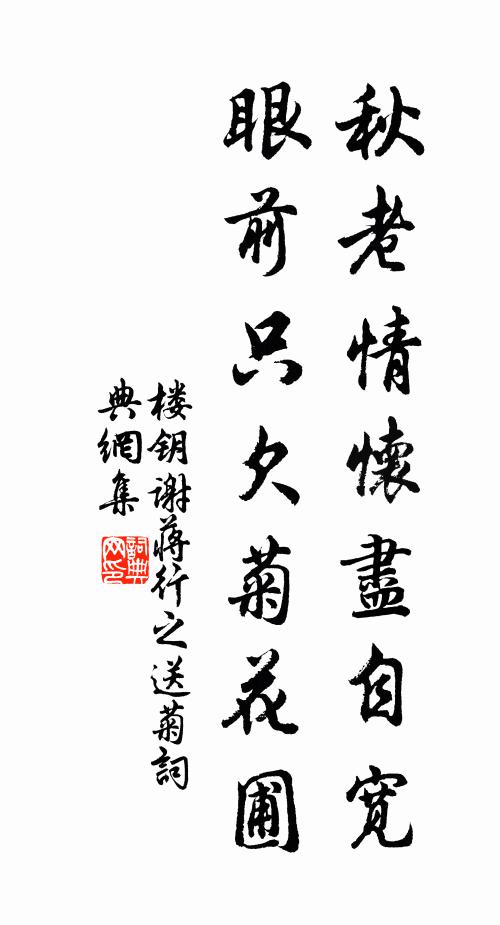 秋老情懷盡自寬
眼前只欠菊花圃
楼钥谢蒋行之送菊詞
典網集
詞典网印